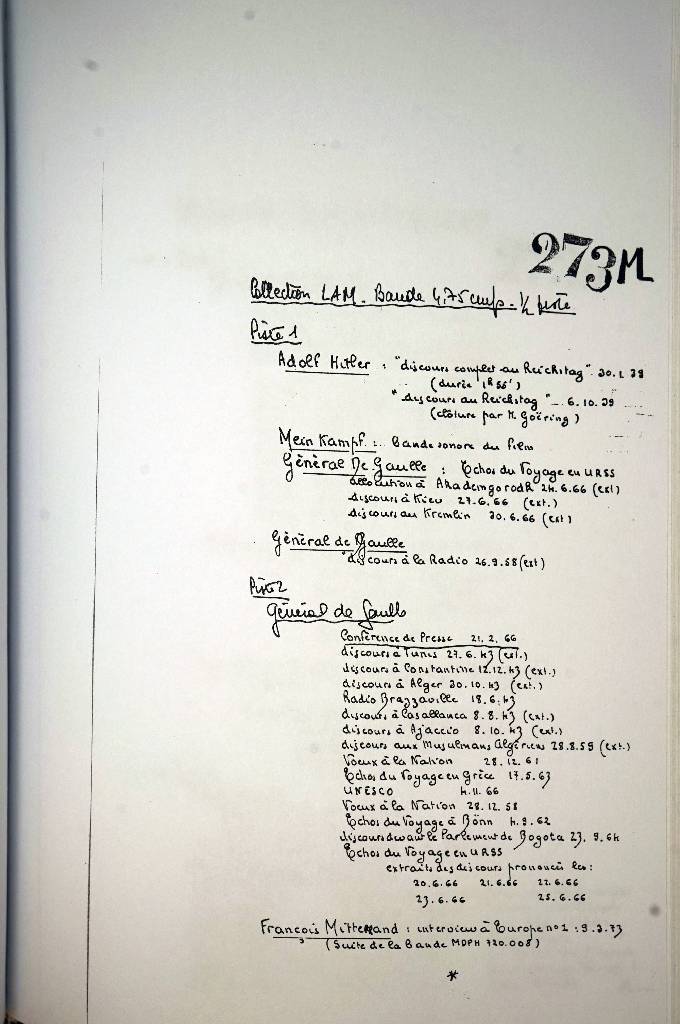 273M
Collection LAM. Bande 4,75 cm/s - ½ piste
Piste 1
Adolf Hitler : "discours complet au Reichstag" 30.1.39
(durée 1h55')
"discours au Reichstag" - 6.10.39
(clôture par H. Goëring)
Mein Kampf : bande sonore du film
Général De Gaulle : Echos du Voyage en URSS
allocution à Akademgorodk 24.6.66 (ext)
discours à Kiev 27.6.66 (ext.)
discours au Kremlin 30.6.66 (ext)
Général de Gaulle
discours à la Radio 26.9.58 (ext)
Piste 2
Général de Gaulle
Conférence de Presse 21.2.66
discours à Tunis 27.6.43 (ext.)
discours à Constantine 12.12.43 (ext.)
discours à Alger 30.10.43 (ext.)
Radio Brazzaville 18.6.43
discours à Casablanca 8.8.43 (ext.)
discours à Ajaccio 8.10.43 (ext.)
discours aux Musulmans Algériens 28.8.59 (ext.)
Voeux à la Nation 28.12.61
Echos du Voyage en Grèce 17.5.63
UNESCO 4.11.66
Voeux à la Nation 28.12.58
Echos du Voyage à Bönn 4.9.62
discours devant le Parlement de Bogota 23.9.64
Echos du Voyage en URSS
extraits des discours prononcés les :
20.6.66 21.6.66 22.6.66
23.6.66 25.6.66
François Mitterrand : interview à Europe n°1 : 9.3.73
(Suite de la bande MDPH 720.008)
*